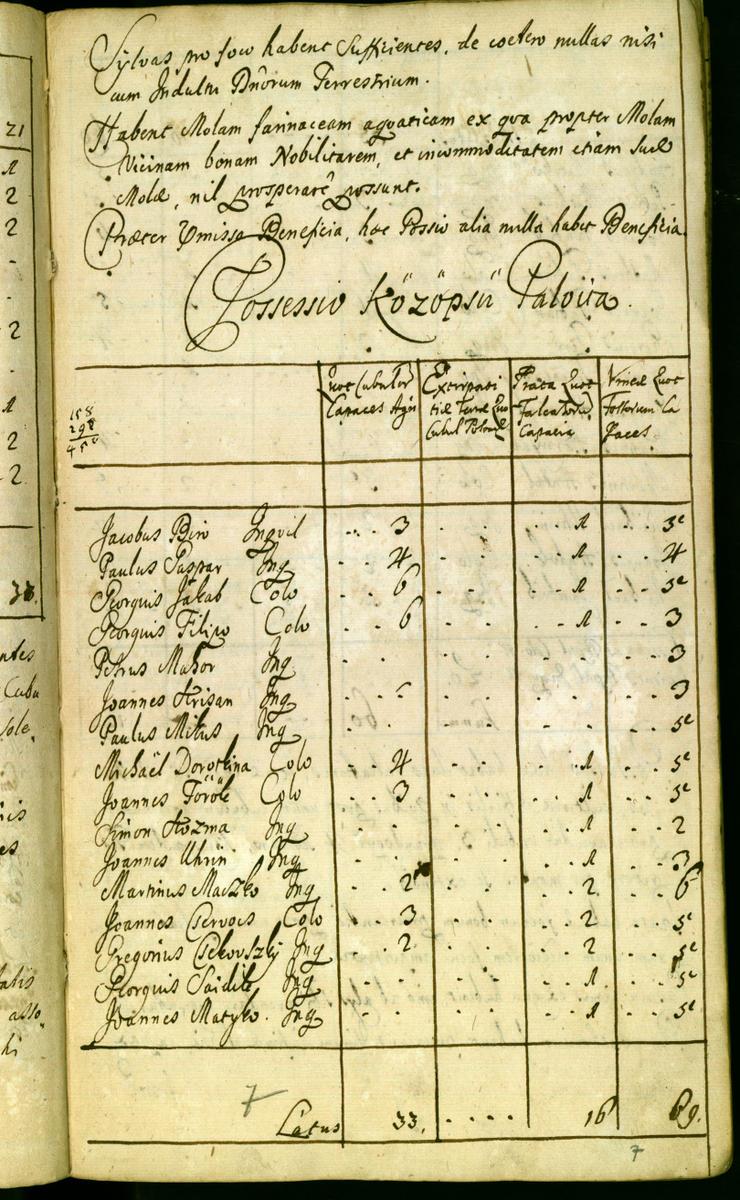 21
1
2
2
-
2
.
1
2
2
33.
ntes
Cubu
sole
es
asso
hi
Sylvas pro foco habent Sufficientes, de coetero nullas nisi
cum Indultu Dnorum Terrestrium.
Habent Molam farinaceam aquaticam ex qva propter Molam
Vicinam bonam Nobilitarem, et incommoditatem etiam suae
Molae, nil prosperare possunt.
Praeter pmissa Beneficia, haec Possio alia nulla habet Beneficia.
Possessio Középsü Paloita.
158
298
450
Quot Cubulor Capaces Agri | Extirpati tiae Terrae Quo Cubul Poson | Prata Quot Falcatorum Capacia | Vineae Quot Fossorum Ca paces
Jacobus Biro Inqvil .. 3 . . . . 1 . . 5
Paulus Gaspar Inq . . 4 . . . . 1 . . 4
Georgius Jakab Colo . . 6 . . . . 1 . . 5
Georgius Filipo Colo . . 6 . . . . 1 . . 3
Petrus Mahor Inq . . . . . . . . 3
Joannes Krisan Inq . . - . . . . . . 3
Paulus Mikus Inq . . . . . . . . 5
Michaël Dorotkina Colo . . 4 . . . . 1 . . 5
Joannes Török Colo . . 3 . . . . 1 . . 5
Simon Kozma Inq . . . . . . 1 . . 2
Joannes Uhrin Inq . . . . . . 1 . . 3
Martinus Maczko Inq . . 2 . . . . 2 . . 6
Joannes Cservocs Colo . . 3 . . . . 2 . . 5
Gregorius Csekovszky Inq . . 2 . . . . 2 . . 5
Georgius Saidik Inq . . . . . . 1 . . 5
Joannes Matyko. Inq . . . . . . 1 . . 5
7
Latus 33. . . . . 16 69.
7